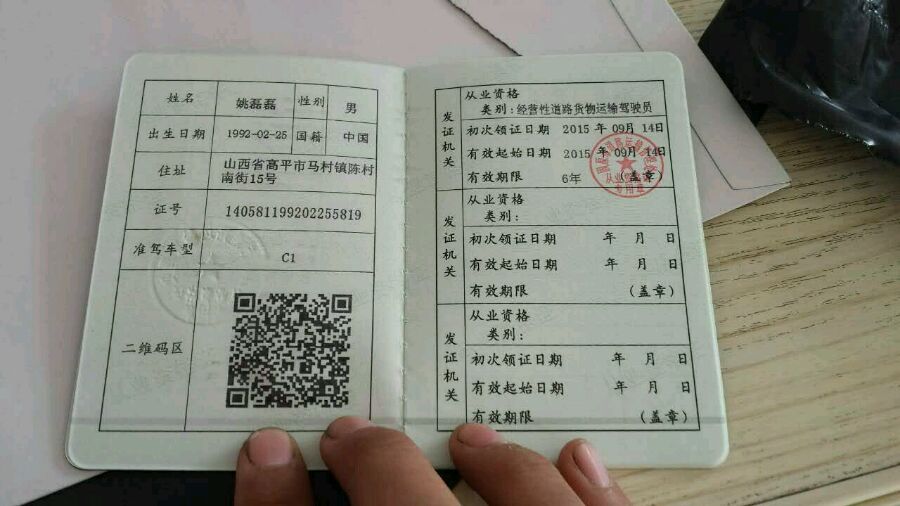 姓名 姚磊磊 性别 男
出生日期 1992-02-25 国籍 中国
住址 山西省高平市马村镇陈村
南街15号
证号 140581199202255819
准驾车型 C1
二维码区
发证机关
从业资格
类别:经营性道路货物运输驾驶员
初次领证日期 2015 年 09月 14日
有效起始日期 2015 年 09月 14日
有效期限 6年 (盖章)
发证机关
从业资格
类别:
初次领证日期 年 月 日
有效起始日期 年 月 日
有效期限 (盖章)
发证机关
从业资格
类别:
初次领证日期 年 月 日
有效起始日期 年 月 日
有效期限 (盖章)